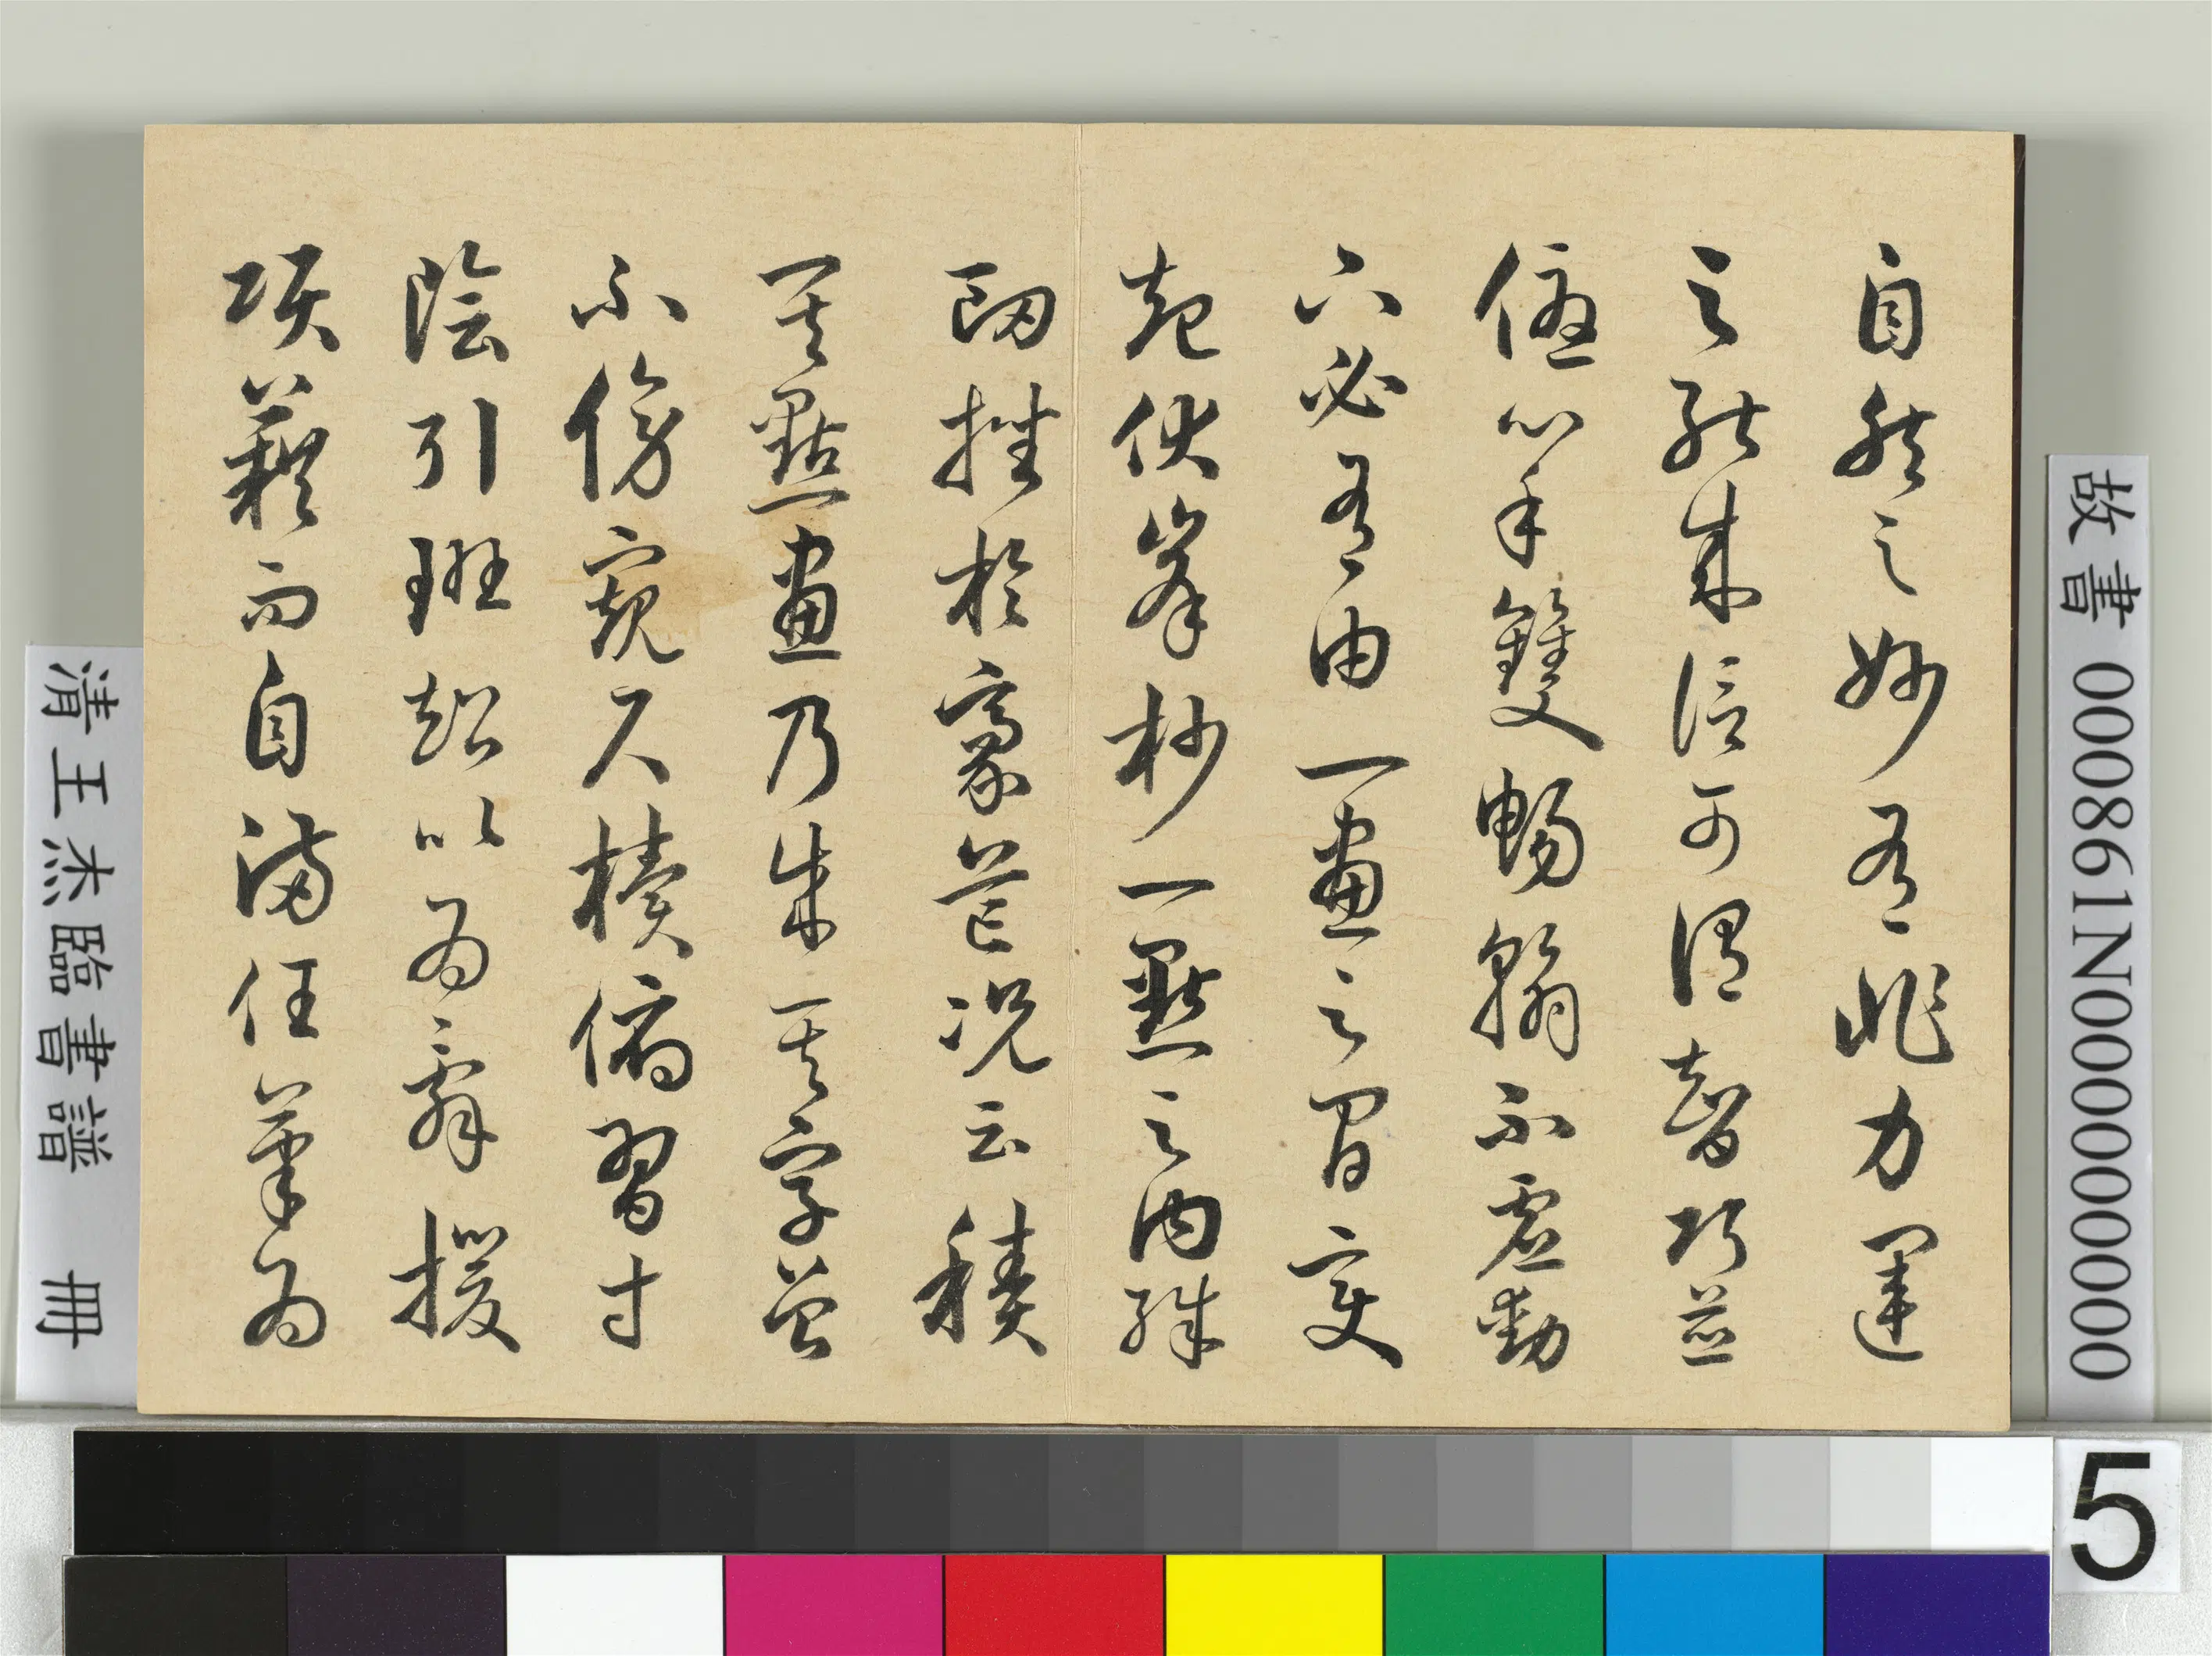 自然之妙有非力運
之能成信可謂智巧兼
優心手雙暢翰不虛動
下必有由一畫之間變
起伏峯杪一點之內殊
衂挫於豪芒況云積
其點畫乃成其字曾
不傍窺尺櫝俯習寸
陰引班超以為辭援
項籍而自滿任筆為
故書 000861N000000000
清王杰臨書譜 冊
5